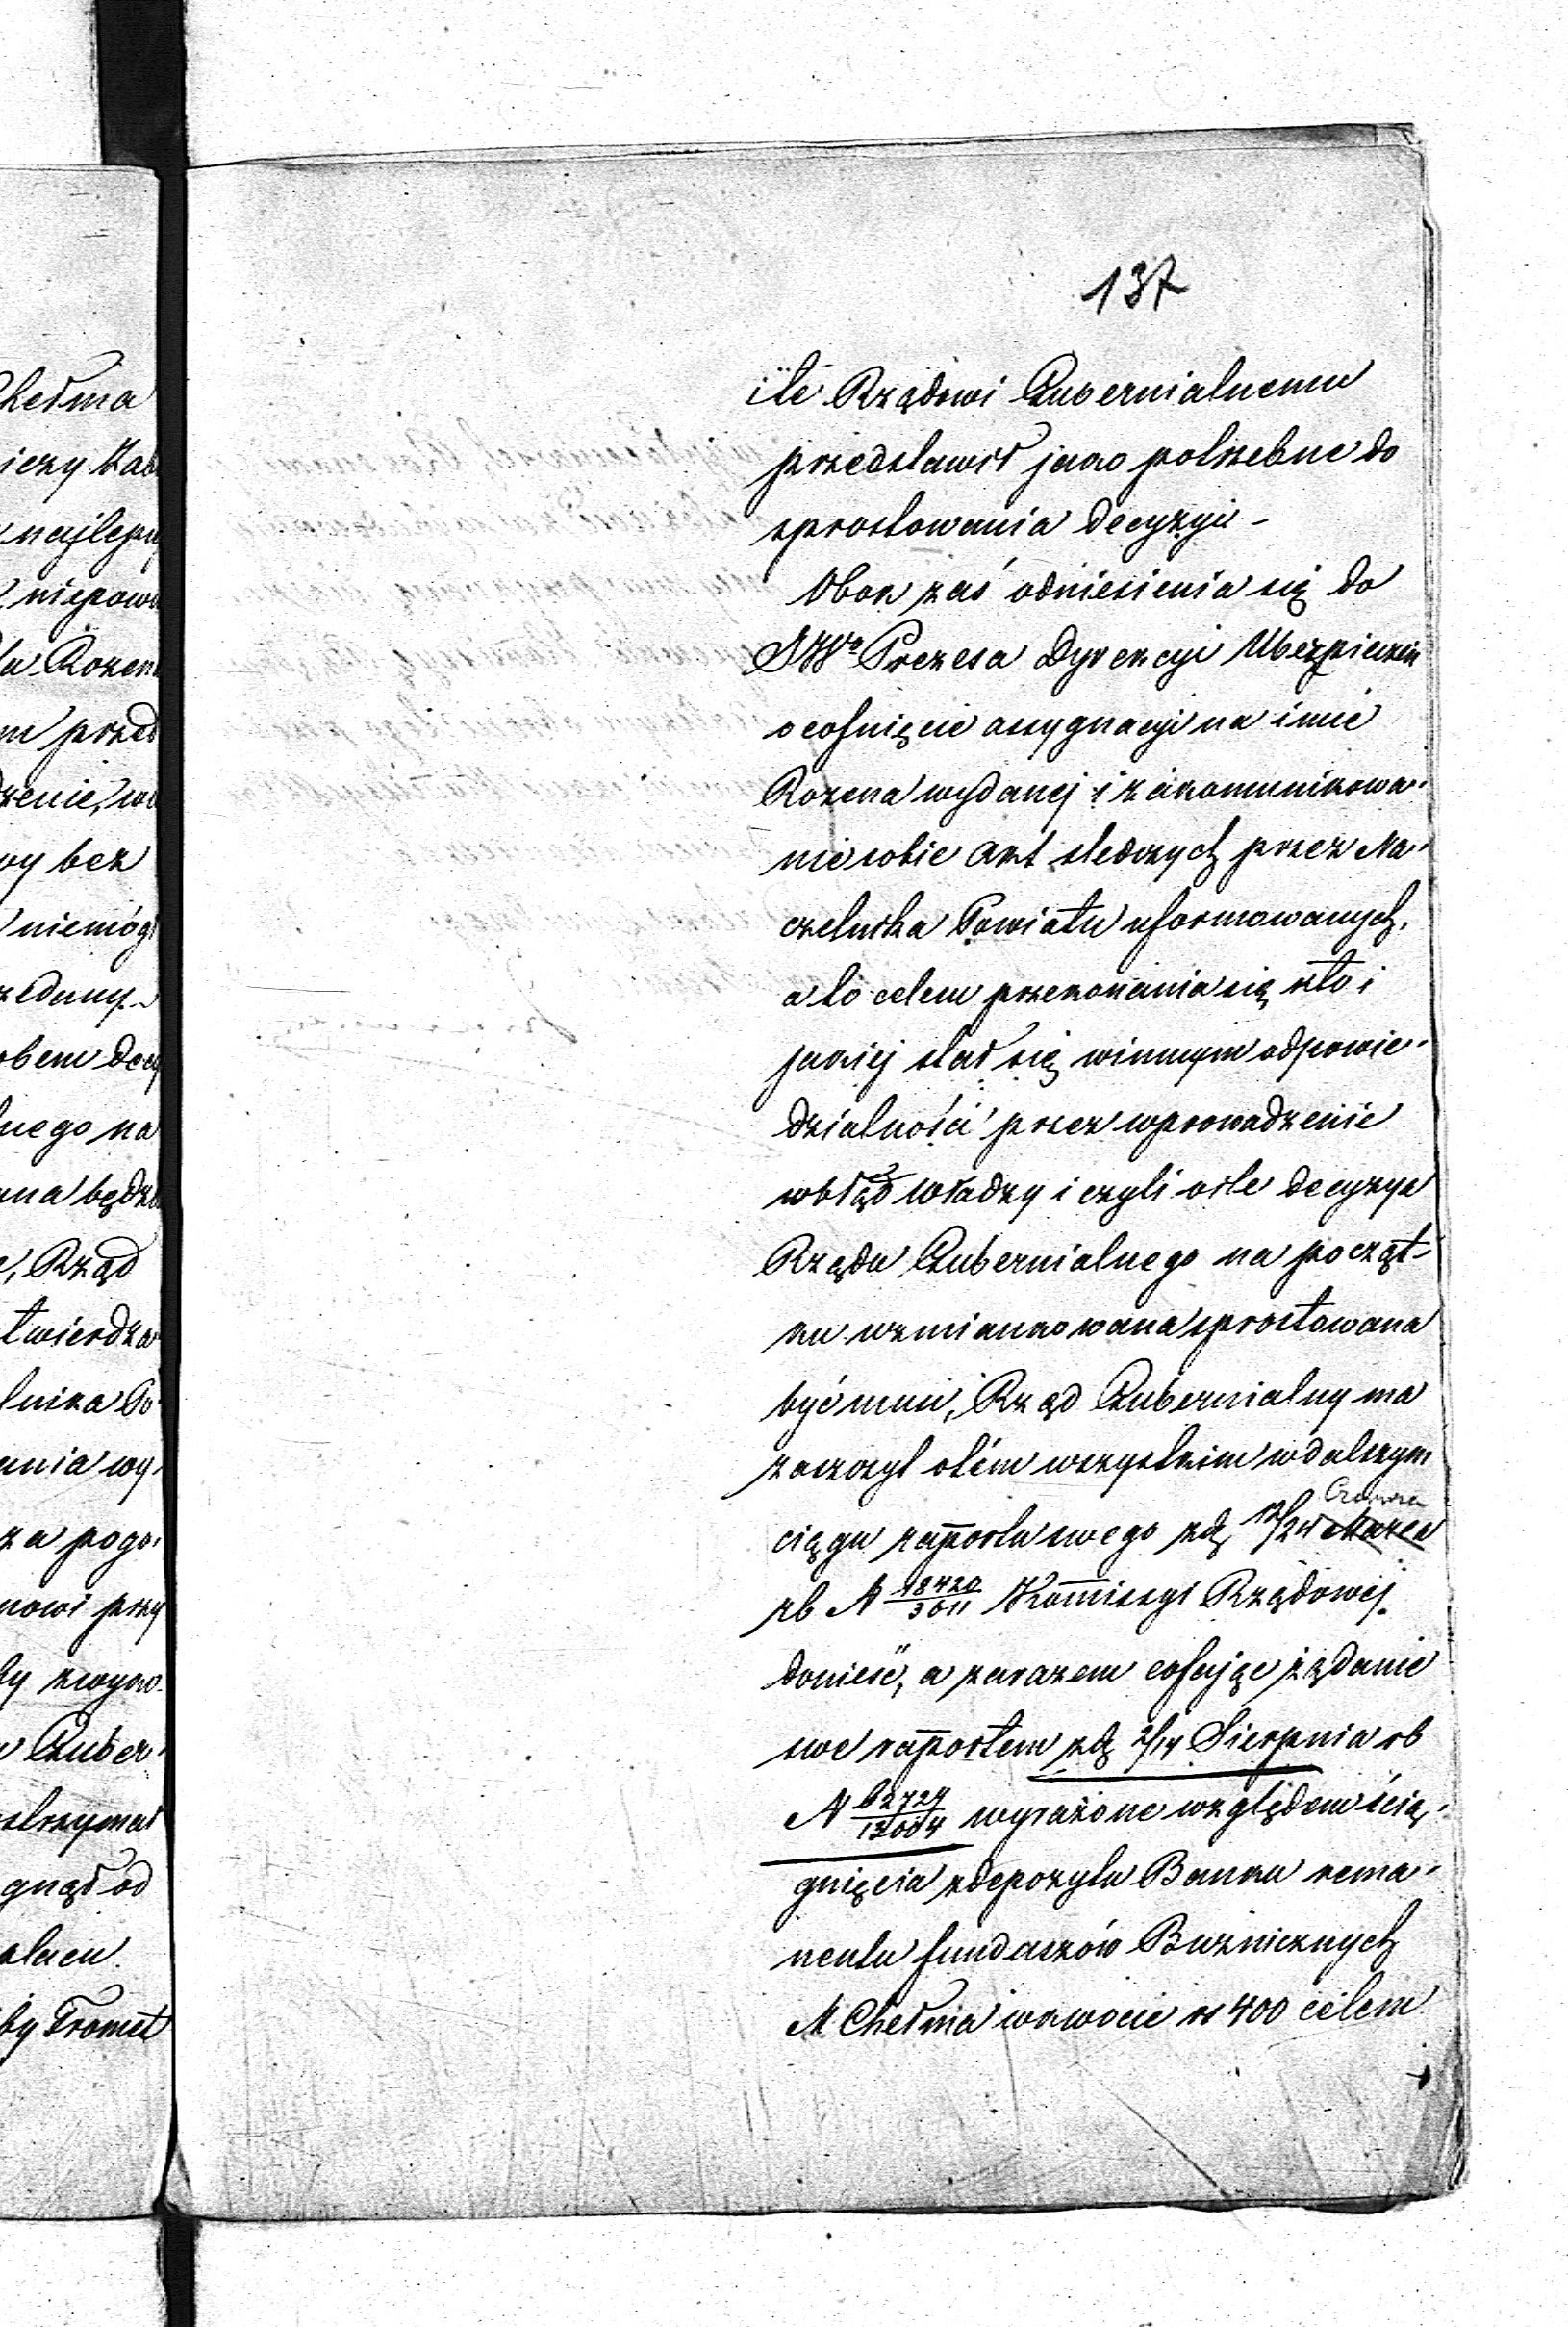 137
ile Rządowi Gubernialnemu
przedstawił jako potrzebne do
sprostowania decyzyi -
Obok zaś odniesienia się do
JWo Prezesa Dyrekcyi Ubezpieczeń
o cofnięcie assygnacyi na imie
Rozena wydanej i zakomunikowa-
nie sobie akt sledczych przez Na-
czelnika Powiatu uformowanych,
a to celem przekonania się kto i
jakiej stał się winnym odpowie-
dzialności przez wprowadzenie
wbłąd władzy i czyli oile decyzya
Rządu Gubernialnego na począt-
ku wzmiankowana sprostowana
być musi, Rząd Gubernialny ma
zaszczyt otém wszystkim wdalszym
ciągu rapportu swego zd. 12/24 Czerwca
Marca
rb N 18420/3611 Kommissyi Rządowej
donieść, a zarazem cofając żądanie
swe rapportem zd. 2/14 Sierpnia rb
N 62727/12004 wyrażone względem ścią-
gnięcia zdepozytu Banku rema-
nentu funduszów Bużnicznych
M Chełma wkwocie rs 400 celem
Chełma
iczy
z najlepsz
niepow
Rozen
m przed
bez
niemógł
obem
nego na
będz
Rząd
twierdza
lnika Po
ania wy-
za pogo-
nowi przy
Guber-
trzymał
gnął od
placu.
by Fromet